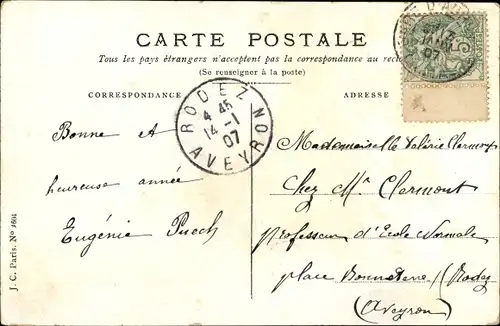 CARTE POSTALE
Tous les pays étrangers n'acceptent pas la correspondance au recto
(Se renseigner à la poste)
CORRESPONDANCE
ADRESSE
RODEZ
4 45
14 -1
07
AVEYRON
Bonne et
heureuse année
Eugénie Puech
Mademoiselle Valérie Clermont
Chez Mr Clermont
professeur d'Ecole Normale
place Bonnaterre // Rodez
(Aveyron)
J. C. Paris. No